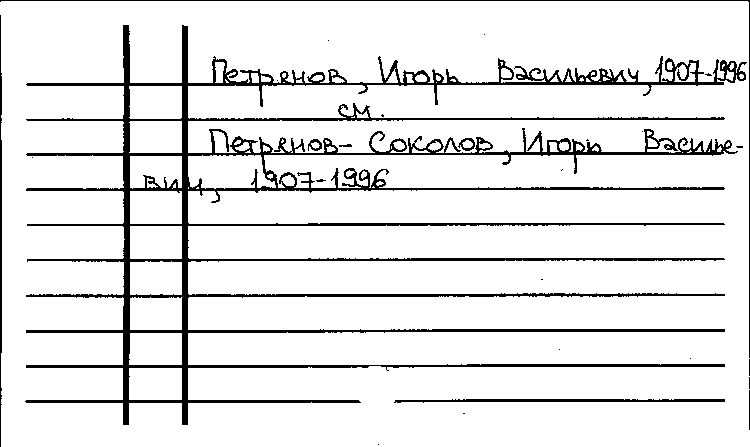 Петрянов, Игорь Васильевич, 1907-1996
см.
Петрянов- Соколов, Игорь Василье-
вич, 1907-1996